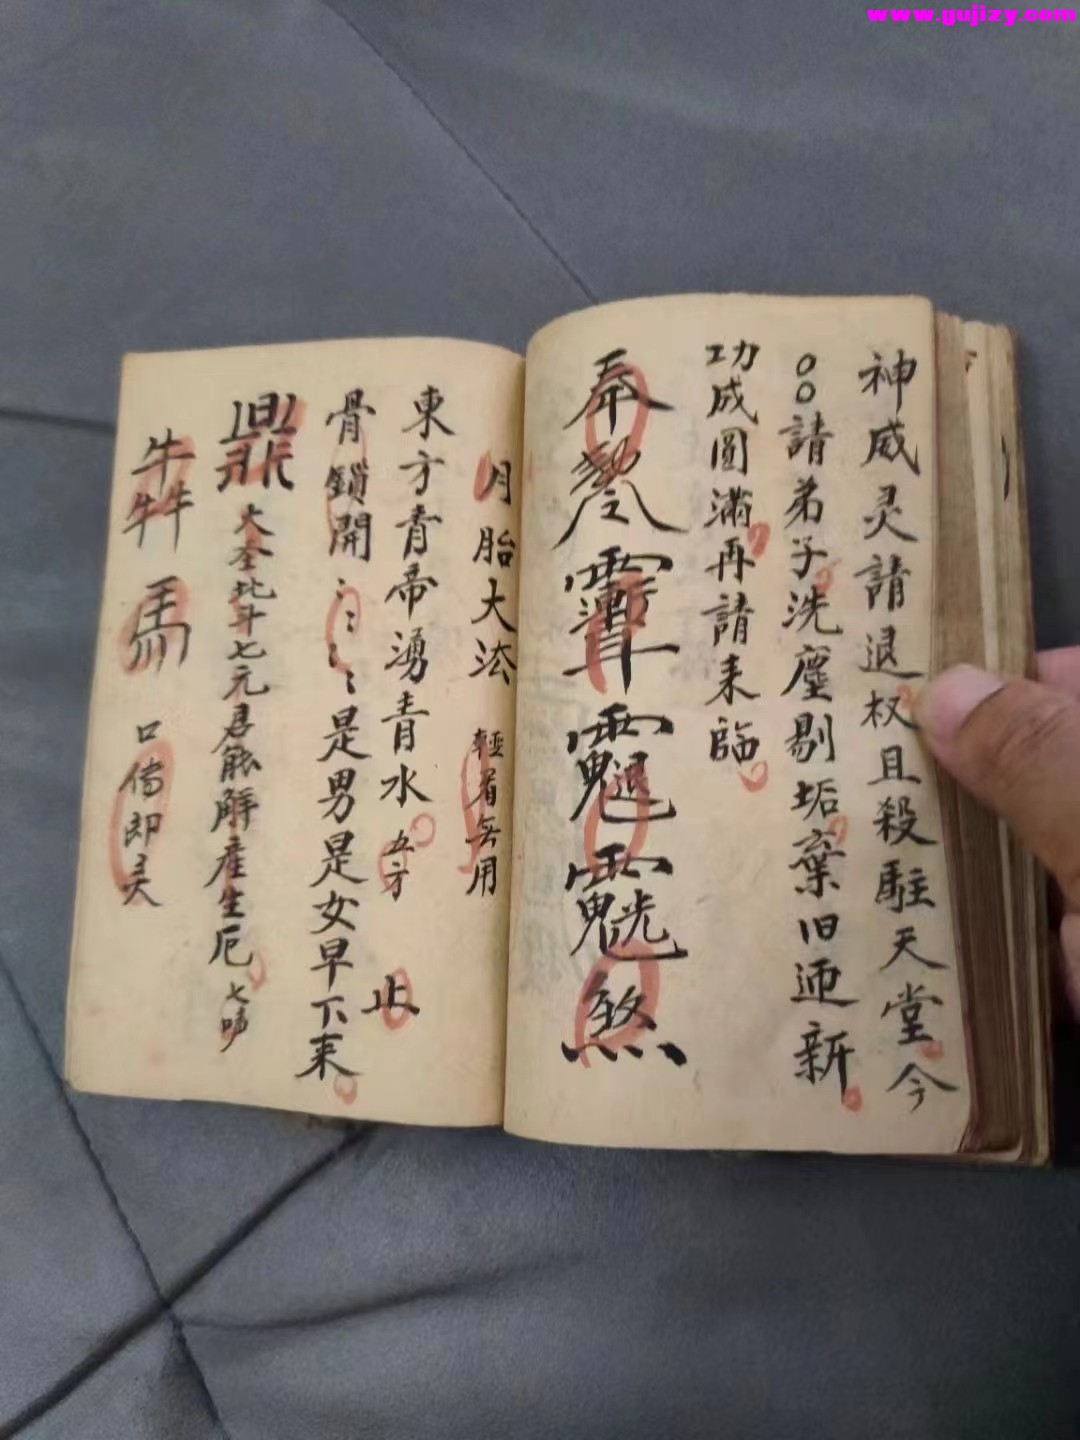 www.gujizy.com
神威灵請退权且殺駐天堂今
○○請弟子洗塵剔垢棄旧迊新
功成圓滿再請来臨
奉
煞
月胎大法 輕者無用
東方青帝湧青水 五方 止
骨鎖開〻〻〻是男是女早下来
大圣北斗七元君能解産生厄 七
犇 馬 口傳即灵